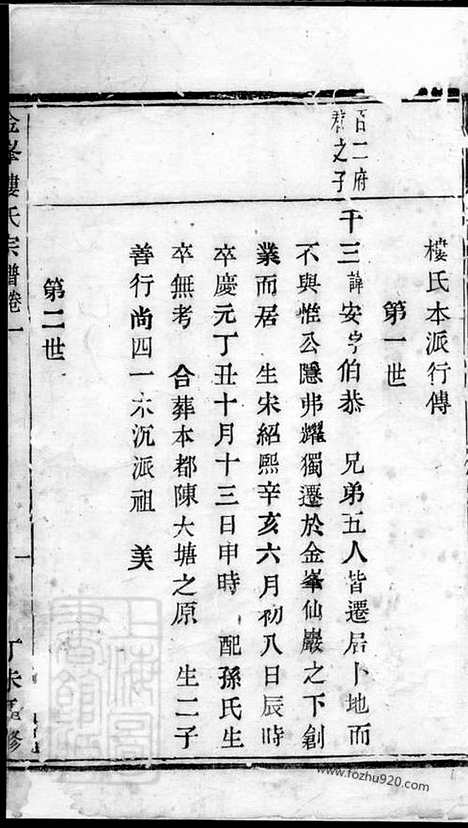 樓氏本派行傳
第一世
百二府
君之子
千三諱安字伯恭 兄弟五人皆遷居卜地而
不與惟公隱弗耀獨遷於金峯仙巖之下創
業而居 生宋紹熙辛亥六月初八日辰時
卒慶元丁丑十月十三日申時 配孫氏生
卒無考 合葬本都陳大塘之原 生二子
善行尚四一 沉派祖 美
第二世
金峯樓氏宗譜卷一
一
丁未重修
上海圖書館藏
www.fozhu920.com